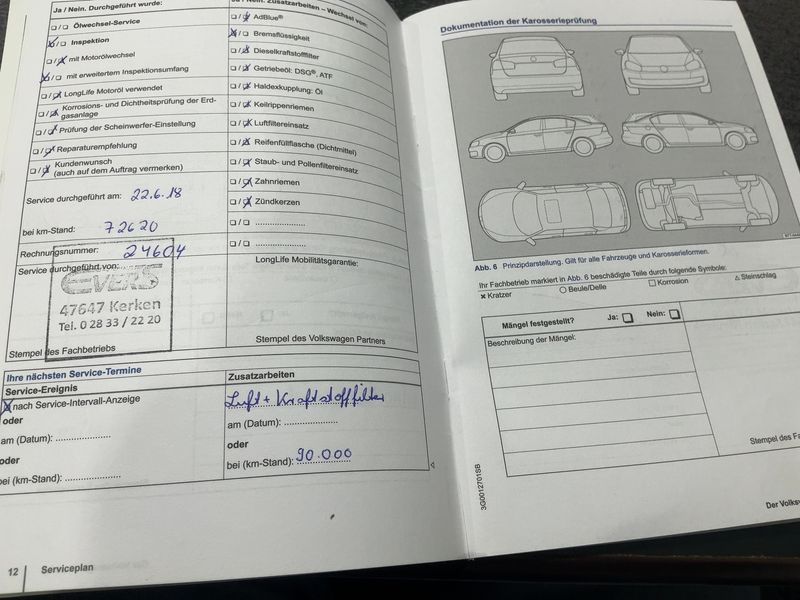 Ja / Nein. Durchgeführt wurde:
❑/❑ Ölwechsel-Service
❑/❑ Inspektion
❑/❑ mit Motorölwechsel
❑/❑ mit erweitertem Inspektionsumfang
❑/❑ LongLife Motoröl verwendet
❑/❑ Korrosions- und Dichtheitsprüfung der Erd-
gasanlage
❑/❑ Prüfung der Scheinwerfer-Einstellung
❑/❑ Reparaturempfehlung
❑/❑ Kundenwunsch
(auch auf dem Auftrag vermerken)
Service durchgeführt am: 22.6.18
bei km-Stand: 72620
Rechnungsnummer: 24604
Service durchgeführt von:
EVERS
47647 Kerken
Tel. 0 28 33 / 22 20
Stempel des Fachbetriebs
Ja / Nein. Zusatzarbeiten – Wechsel von:
❑/❑ AdBlue®
❑/❑ Bremsflüssigkeit
❑/❑ Dieselkraftstofffilter
❑/❑ Getriebeöl: DSG®, ATF
❑/❑ Haldexkupplung: Öl
❑/❑ Keilrippenriemen
❑/❑ Luftfiltereinsatz
❑/❑ Reifenfüllflasche (Dichtmittel)
❑/❑ Staub- und Pollenfiltereinsatz
❑/❑ Zahnriemen
❑/❑ Zündkerzen
❑/❑ ....................
❑/❑ ....................
LongLife Mobilitätsgarantie:
Stempel des Volkswagen Partners
Ihre nächsten Service-Termine
Service-Ereignis
nach Service-Intervall-Anzeige
oder
am (Datum): ....................
oder
bei (km-Stand): ....................
Zusatzarbeiten
Luft + Kraftstofffilter
am (Datum): ....................
oder
bei (km-Stand): 90.000
12 Serviceplan
Dokumentation der Karosserieprüfung
Abb. 6 Prinzipdarstellung. Gilt für alle Fahrzeuge und Karosserieformen.
Ihr Fachbetrieb markiert in Abb. 6 beschädigte Teile durch folgende Symbole:
✖ Kratzer ○ Beule/Delle □ Korrosion △ Steinschlag
Mängel festgestellt? Ja: ❑ Nein: ❑
Beschreibung der Mängel:
Stempel des Fa
3G0012701SB
Der Volksw